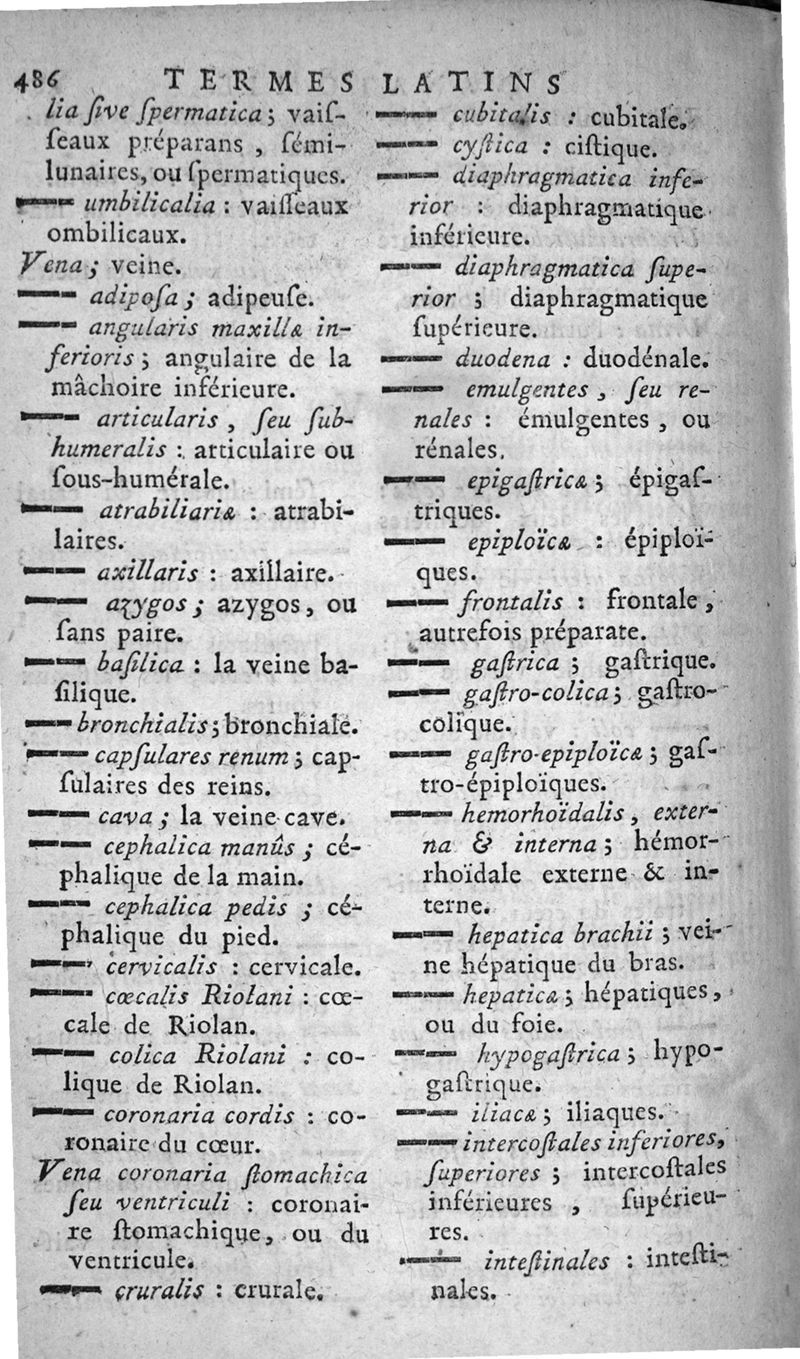 486 TERMES LATINS
lia ſive ſpermatica ; vaiſ-
ſeaux préparans , ſémi-
lunaires, ou ſpermatiques.
—— umbilicalia : vaiſſeaux
ombilicaux.
Vena ; veine.
—— adipoſa ; adipeuſe.
—— angularis maxillæ in-
ferioris ; angulaire de la
mâchoire inférieure.
—— articularis , ſeu ſub-
humeralis : articulaire ou
ſous-humérale.
—— atrabiliariæ : atrabi-
laires.
—— axillaris : axillaire.
—— azygos ; azygos, ou
ſans paire.
—— baſilica : la veine ba-
ſilique.
—— bronchialis ; bronchiale.
—— capſulares renum ; cap-
ſulaires des reins.
—— cava ; la veine cave.
—— cephalica manûs ; cé-
phalique de la main.
—— cephalica pedis ; cé-
phalique du pied.
—— cervicalis : cervicale.
—— cœcalis Riolani : cœ-
cale de Riolan.
—— colica Riolani : co-
lique de Riolan.
—— coronaria cordis : co-
ronaire du cœur.
Vena coronaria ſtomachica
ſeu ventriculi : coronai-
re ſtomachique, ou du
ventricule.
—— cruralis : crurale.
—— cubitalis : cubitale.
—— cyſtica : ciſtique.
—— diaphragmatica infe-
rior : diaphragmatique
inférieure.
—— diaphragmatica ſupe-
rior ; diaphragmatique
ſupérieure.
—— duodena : duodénale.
—— emulgentes , ſeu re-
nales : émulgentes , ou
rénales.
—— epigaſtricæ ; épigaſ-
triques.
—— epiploïcæ : épiploï-
ques.
—— frontalis : frontale ,
autrefois préparate.
—— gaſtrica ; gaſtrique.
—— gaſtro-colica ; gaſtro-
colique.
—— gaſtro-epiploïcæ ; gaſ-
tro-épiploïques.
—— hemorhoïdalis , exter-
na & interna ; hémor-
rhoïdale externe & in-
terne.
—— hepatica brachii ; vei-
ne hépatique du bras.
—— hepaticæ ; hépatiques ,
ou du foie.
—— hypogaſtrica ; hypo-
gaſtrique.
—— iliacæ ; iliaques.
—— intercoſtales inferiores,
ſuperiores ; intercoſtales
inférieures , ſupérieu-
res.
—— inteſtinales : inteſti-
nales.